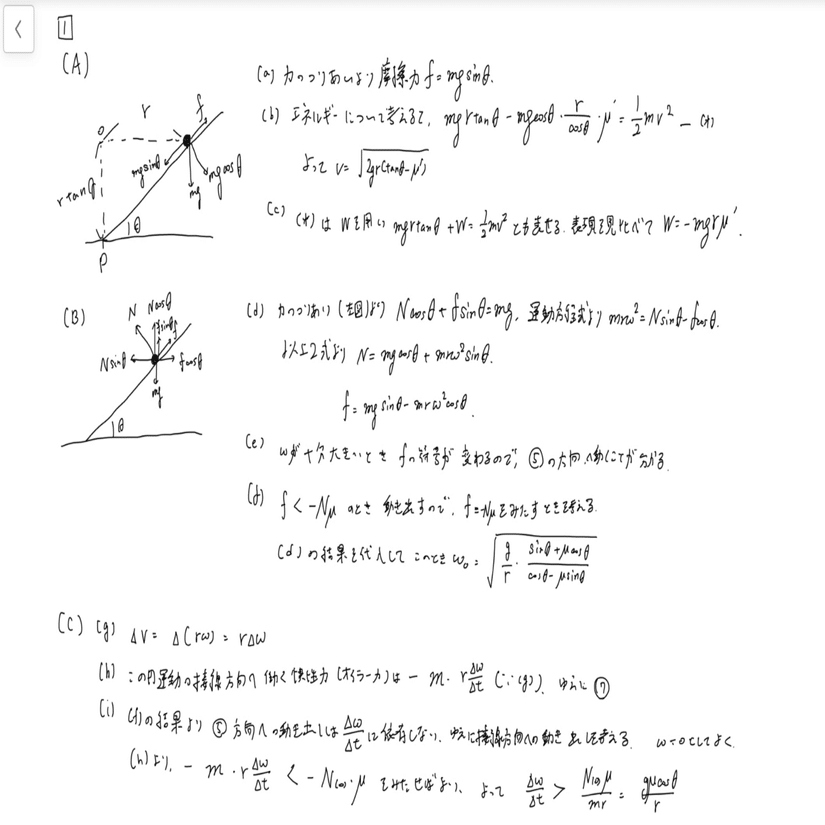 1
(A)
r
f
O
mg sinθ
mg cosθ
mg
r tanθ
θ
P
(a) 力のつりあいより 摩擦力 f = mg sinθ.
(b) エネルギーについて考えると, mg r tanθ − mg cosθ・r/cosθ・μ' = 1/2 mv² — (*)
よって v = √(2gr(tanθ−μ'))
(c) (*) は Wを用い mg r tanθ + W = 1/2 mv² とも表せる. 表現を見比べて W = −mgrμ'.
(B)
N Ncosθ
fsinθ f
Nsinθ fcosθ
mg
θ
(d) 力のつりあい (左図)より Ncosθ + fsinθ = mg, 運動方程式より mrω² = Nsinθ − fcosθ.
以上2式より N = mg cosθ + mrω² sinθ.
f = mg sinθ − mrω² cosθ.
(e) ωが十分大きいとき fの符号が変わるので, ⑤の方向へ動くことが分かる.
(f) f < −Nμ のとき動き出すので, f = −Nμ をみたすときを考える.
(d)の結果を代入して このとき ω₀ = √(g/r・(sinθ+μcosθ)/(cosθ−μsinθ))
(C) (g) ΔV = Δ(rω) = rΔω
(h) この円運動の接線方向へ働く慣性力(オイラー力)は − m・r Δω/Δt (∵(g)). ゆえに ⑦
(i) (f)の結果より ⑤方向への動き出しは Δω/Δt に依存しない. ゆえに接線方向への動き出しを考える. ω=0としてよく
(h)より, − m・r Δω/Δt < − N(ω)・μ をみたせばよい, よって Δω/Δt > N(ω)μ/mr = gμcosθ/r